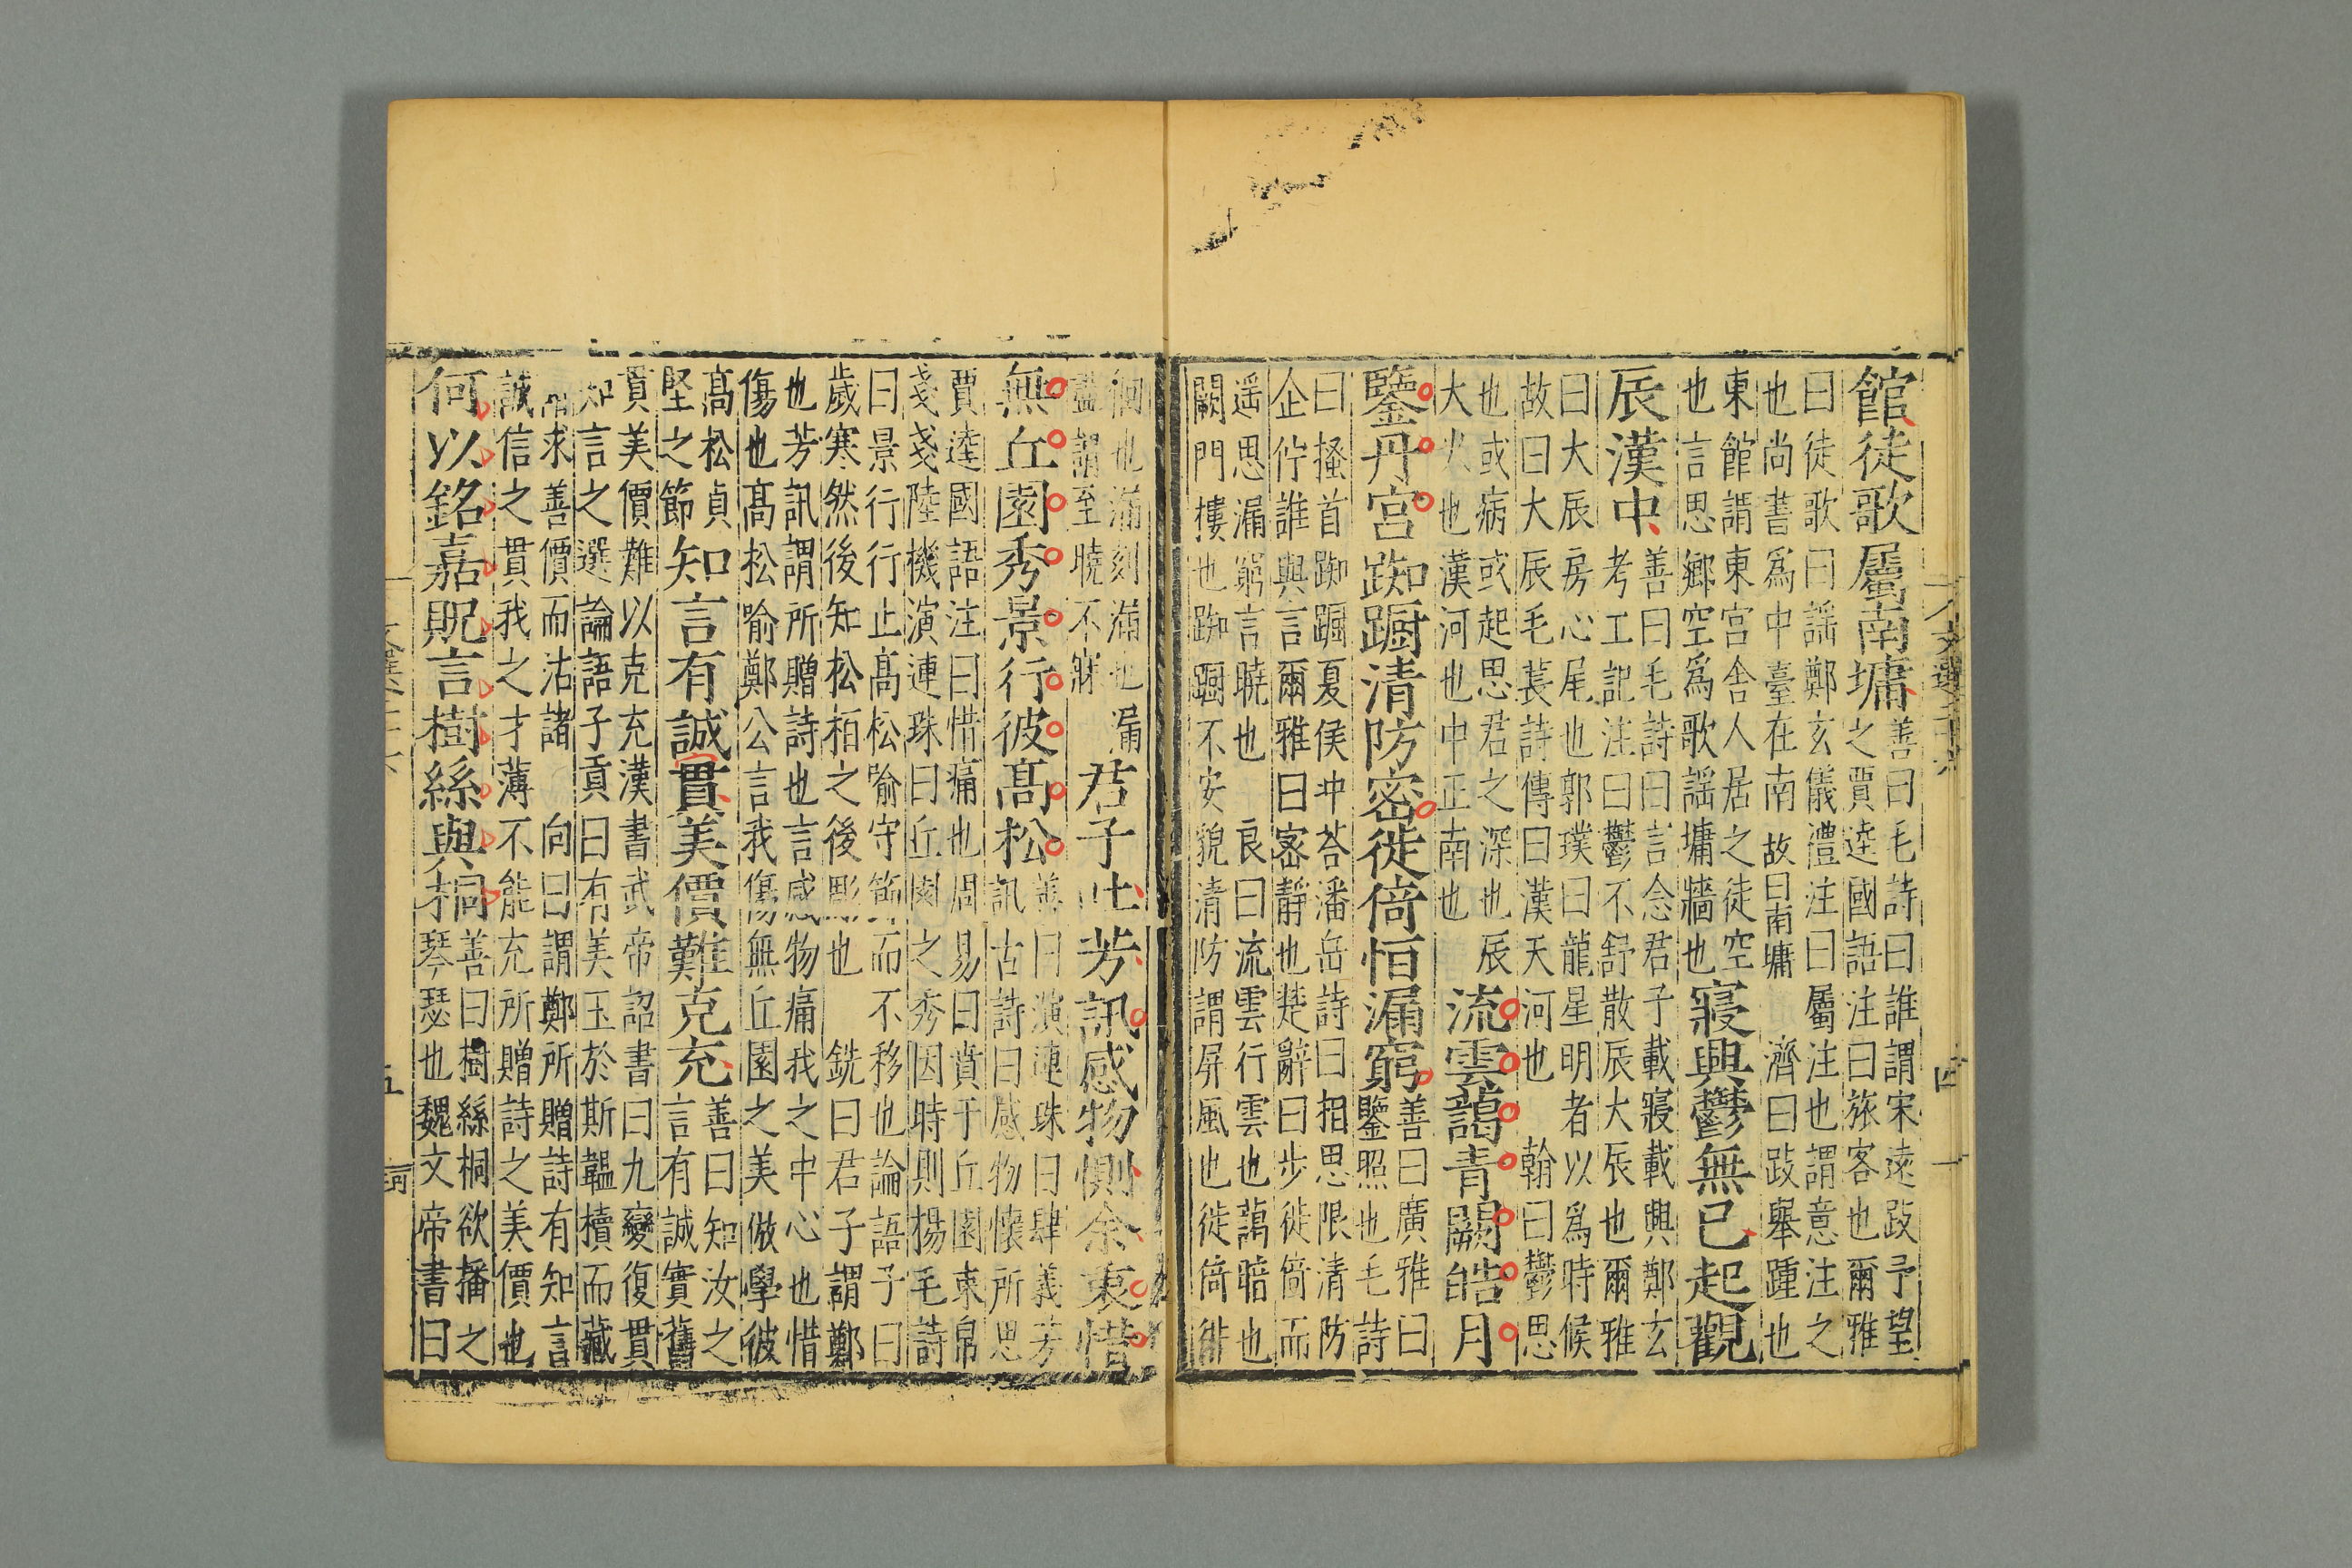 館徒歌屬南墉善曰毛詩曰誰謂宋遠跂予望
之賈逵國語注曰旅客也爾雅
曰徒歌曰謡鄭玄儀禮注曰屬注也謂意注之
也尚書為中臺在南故曰南墉濟曰跂舉踵也
東館謂東宮舎人居之徒空
也言思鄉空爲歌謡墉牆也寢興鬱無已起觀
辰漢中善曰毛詩曰言念君子載寢載興鄭玄
考工記注曰鬱不舒散辰大辰也爾雅
曰大辰房心尾也郭璞曰龍星明者以爲時候
故曰大辰毛萇詩傳曰漢天河也翰曰鬱思
也或病或起思君之深也辰
大火也漢河也中正南也流雲藹青闕皓月
鑒丹宮踟蹰清防密徙倚恒漏窮善曰廣雅曰
鑒照也毛詩
曰搔首踟蹰夏侯冲荅潘岳詩曰相思限清防
企佇誰與言爾雅曰密靜也楚辭曰步徙倚而
遥思漏窮言曉也良曰流雲行雲也藹暗也
闕門樓也踟蹰不安貌清防謂屏風也徙倚徘
徊也漏刻漏也漏
盡謂至曉不寐君子吐芳訊感物惻余衷惜
無丘園秀景行彼髙松善曰演連珠曰肆義芳
訊古詩曰感物懷所思
賈逵國語注曰惜痛也周易曰賁于丘園束帛
戔戔陸機演連珠曰丘園之秀因時則揚毛詩
曰景行行止髙松喻守節而不移也論語子曰
歲寒然後知松栢之後彫也銑曰君子謂鄭
也芳訊謂所贈詩也言感物痛我之中心也惜
傷也髙松喻鄭公言我傷無丘園之美倣學彼
髙松貞
堅之節知言有誠貫美價難克充善曰知汝之
言有誠實舊
貫美價難以克充漢書武帝詔書曰九變復貫
知言之選論語子貢曰有美玉於斯韞櫝而藏
諸求善價而沽諸向曰謂鄭所贈詩有知言
誠信之貫我之才薄不能充所贈詩之美價也
何以銘嘉貺言樹絲與桐善曰樹絲桐欲播之
琴瑟也魏文帝書曰